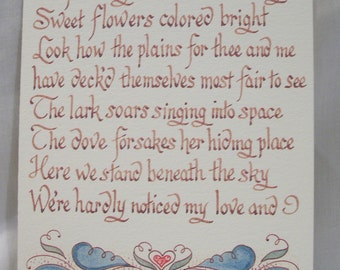 Sweet flowers colored bright
Look how the plains for thee and me
have deck'd themselves most fair to see
The lark soars singing into space
The dove forsakes her hiding place
Here we stand beneath the sky
We're hardly noticed my love and I